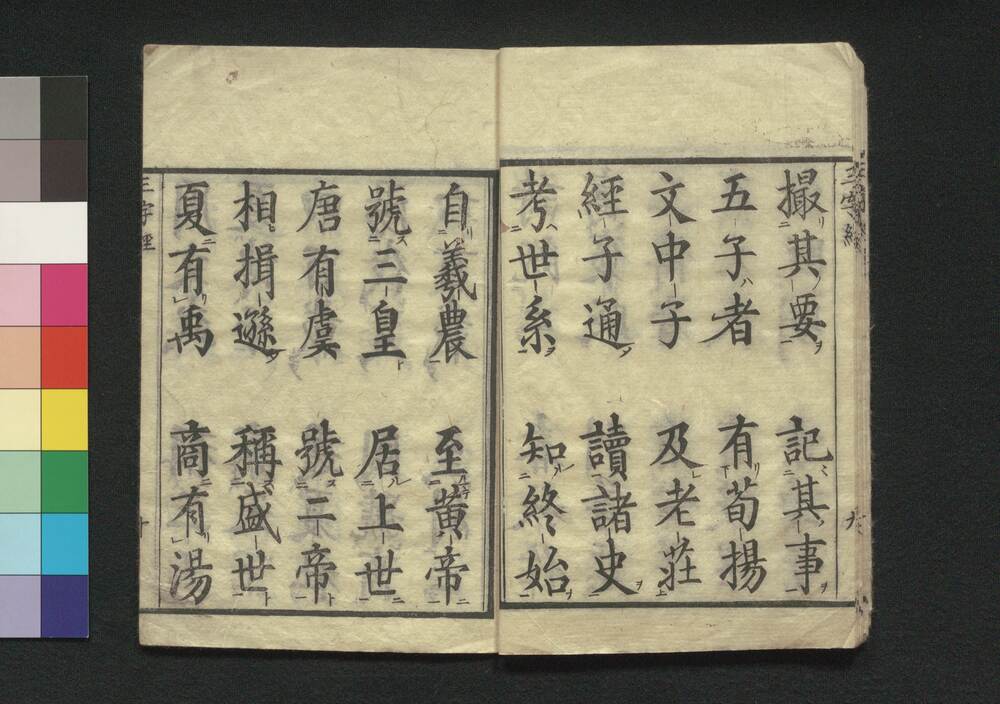 三字經
九
撮其要 記其事
五子者 有荀揚
文中子 及老莊
經子通 讀諸史
考世系 知終始
自羲農 至黃帝
號三皇 居上世
唐有虞 號二帝
相揖遜 稱盛世
夏有禹 商有湯
三字經
十